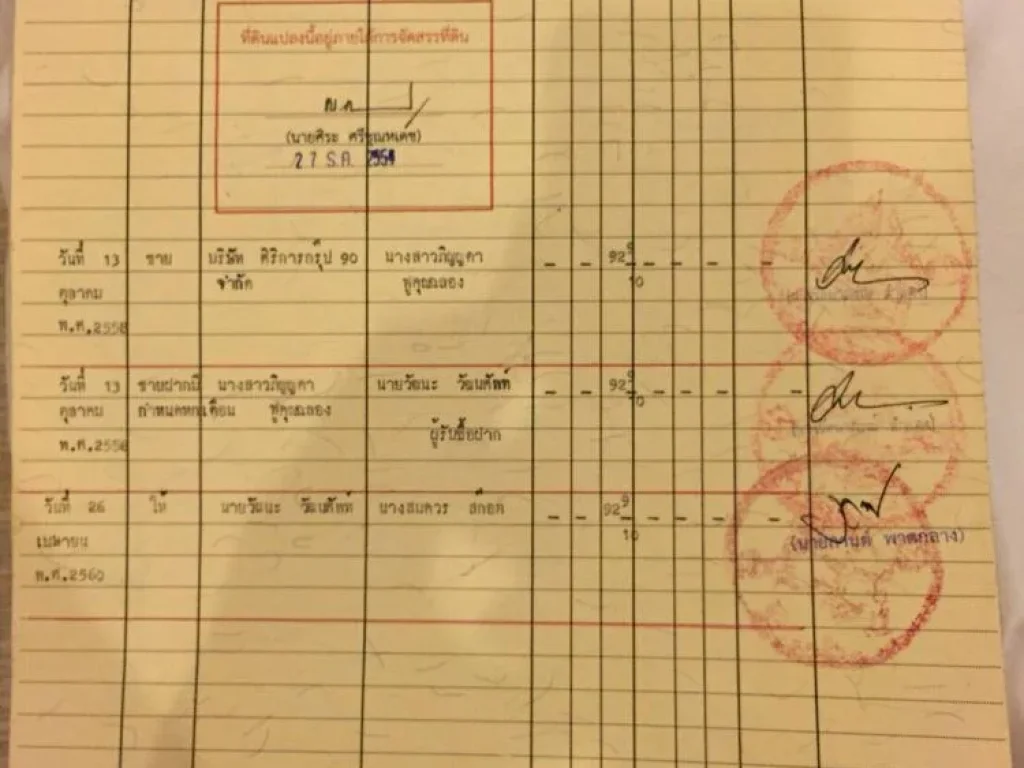 ที่ดินแปลงนี้อยู่ภายใต้การจัดสรรที่ดิน
(นายศิระ
27 ธ.ค.
วันที่ 13 ขาย บริษัท ศิริการกรุ๊ป 90 นางสาวภิญญดา - - 92 9/10 - - - -
ตุลาคม จำกัด
พ.ศ.2558
วันที่ 13 ขายฝากมี นางสาวภิญญดา นายวัฒนะ วัฒนศัพท์ - - 92 9/10 - - - -
ตุลาคม กำหนดหกเดือน
พ.ศ.2558 ผู้รับซื้อฝาก
วันที่ 26 ให้ นายวัฒนะ วัฒนศัพท์ นางสมควร - - 92 9/10 - - - -
เมษายน (นายกานต์ พาดกลาง)
พ.ศ.2560